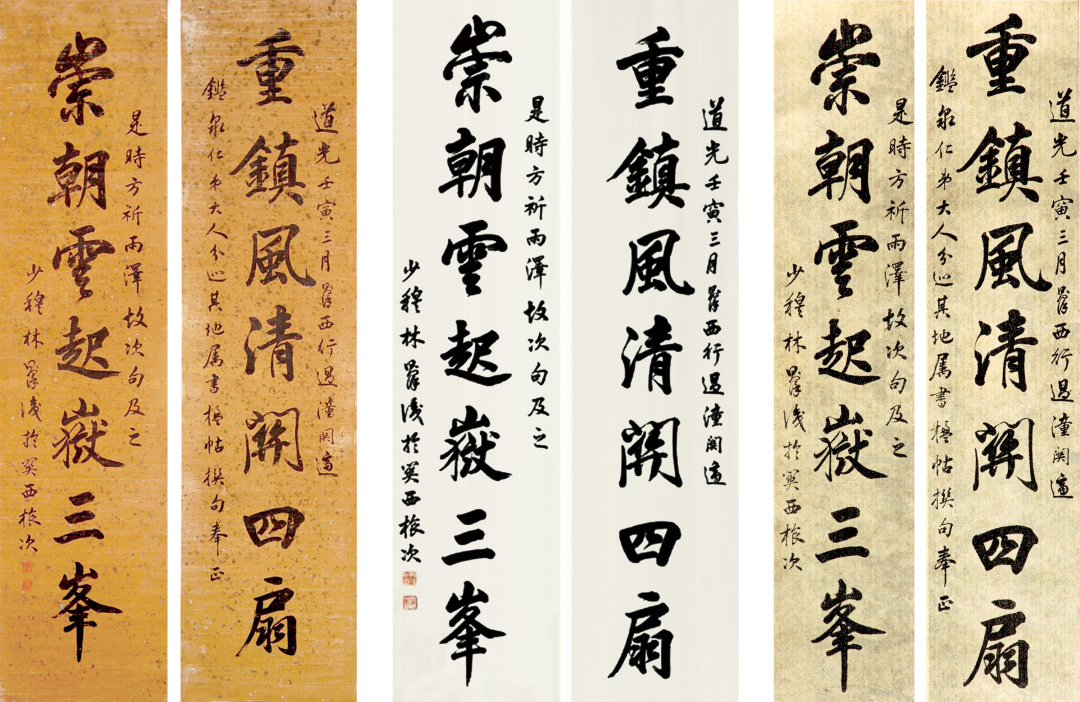 道光壬寅三月則徐西行過潼關適
重鎮風清關四扇
鑑泉仁弟大人分巡其地属書楹帖撰句奉正
是時方祈雨澤故次句及之
崇朝雲起嶽三峯
少穆林則徐識於關西旅次
道光壬寅三月則徐西行過潼關適
重鎮風清關四扇
是時方祈雨澤故次句及之
崇朝雲起嶽三峯
少穆林則徐識於關西旅次
道光壬寅三月則徐西行過潼關適
重鎮風清關四扇
鑑泉仁弟大人分巡其地属書楹帖撰句奉正
是時方祈雨澤故次句及之
崇朝雲起嶽三峯
少穆林則徐識於關西旅次